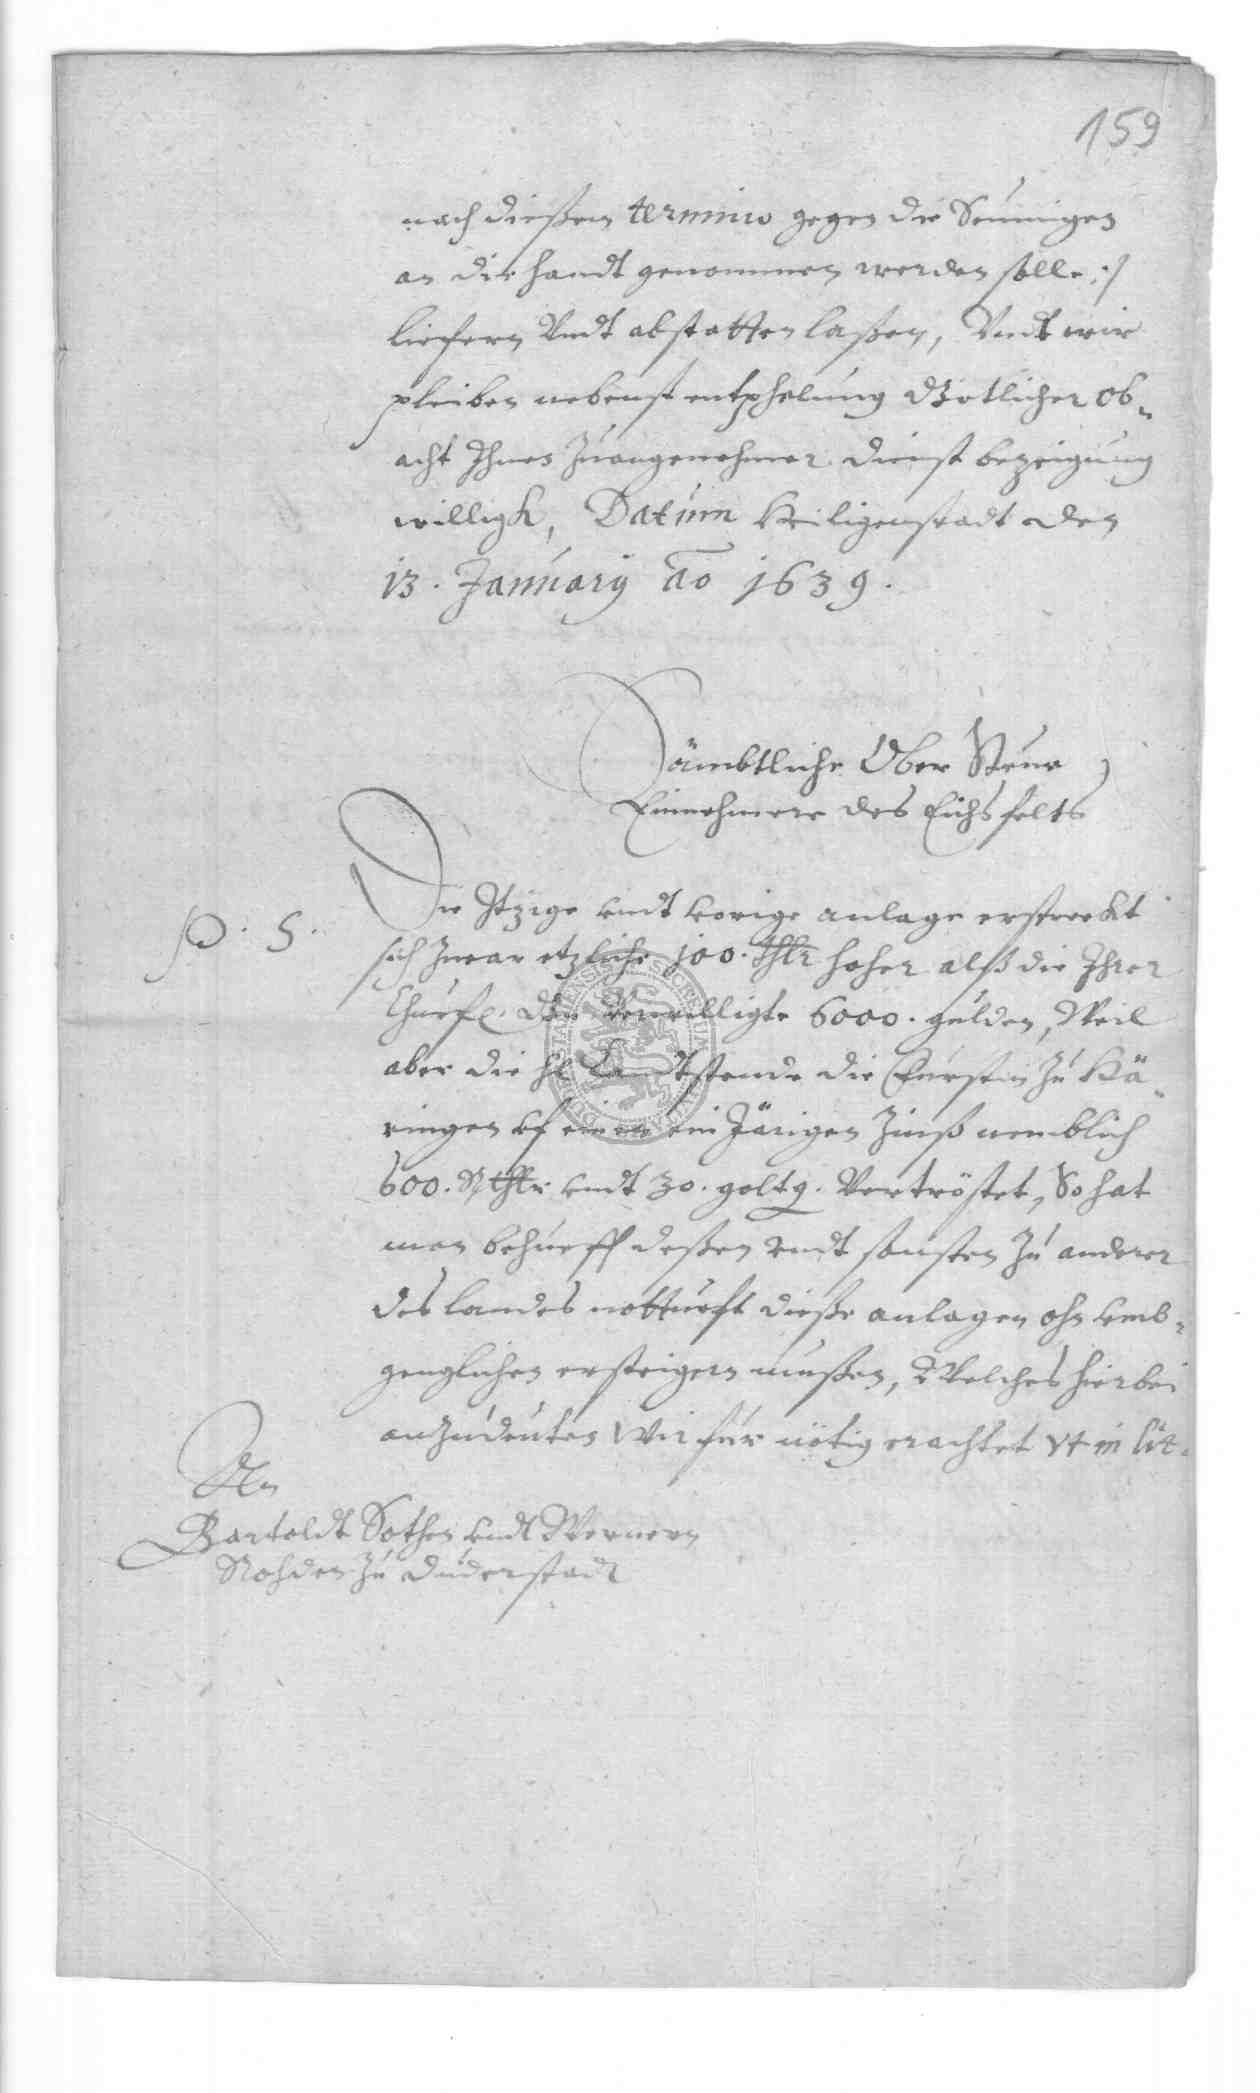 159
nach dießem termino gegen die Seumigen
an die handt genommen werden solle :/
liefern Undt abstatten laßen, Undt wir
pleiben nebenst entphelung Gotlicher ob-
acht Ihnen Zu angenehmer dienst bezeigung
willigk, Datum Heiligenstadt den
13. January ao 1639.
Sämbtliche Ober Steur
Einnehmere des Eichsfelts
P. S.
Die Itzige undt vorige anlage erstreckt
sich Zwar etzliche 100. thlr hoher alß die Ihrer
Churfl. Gn. verwilligte 6000. gulden, Weil
aber die hl Landtstende die Fürstin Zu
ringen uf einen ein Järigen Zinß nemblich
600. Rthlr undt 30. goltg. Vertröstet, So hat
man behueff deßen undt sonsten Zu anderer
des landes notturft dieße anlagen ohn umb-
genglichen ersteigern mußen, Welches hierbei
anzudeuten Wir für nötig erachtet ut in lit.
An
Bartoldt Sothen undt Wernern
Rohden Zu Duderstadt